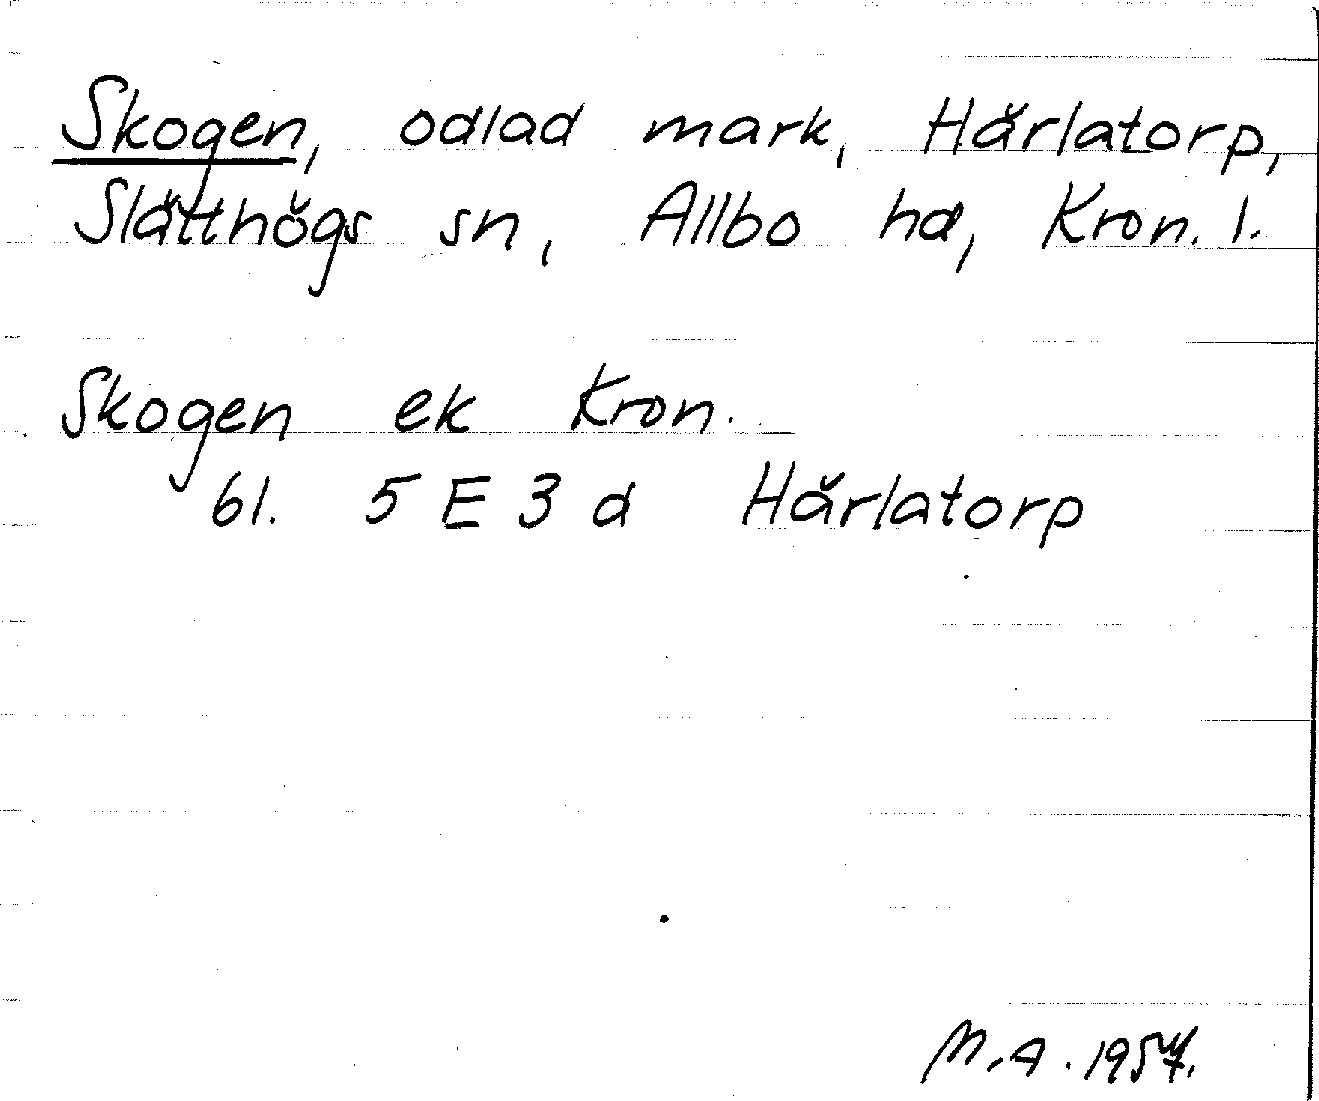 Skogen, odlad mark, Härlatorp,
Slätthögs sn, Allbo hd, Kron. l.
Skogen ek Kron.
61. 5 E 3 d Härlatorp
M.A. 1957.